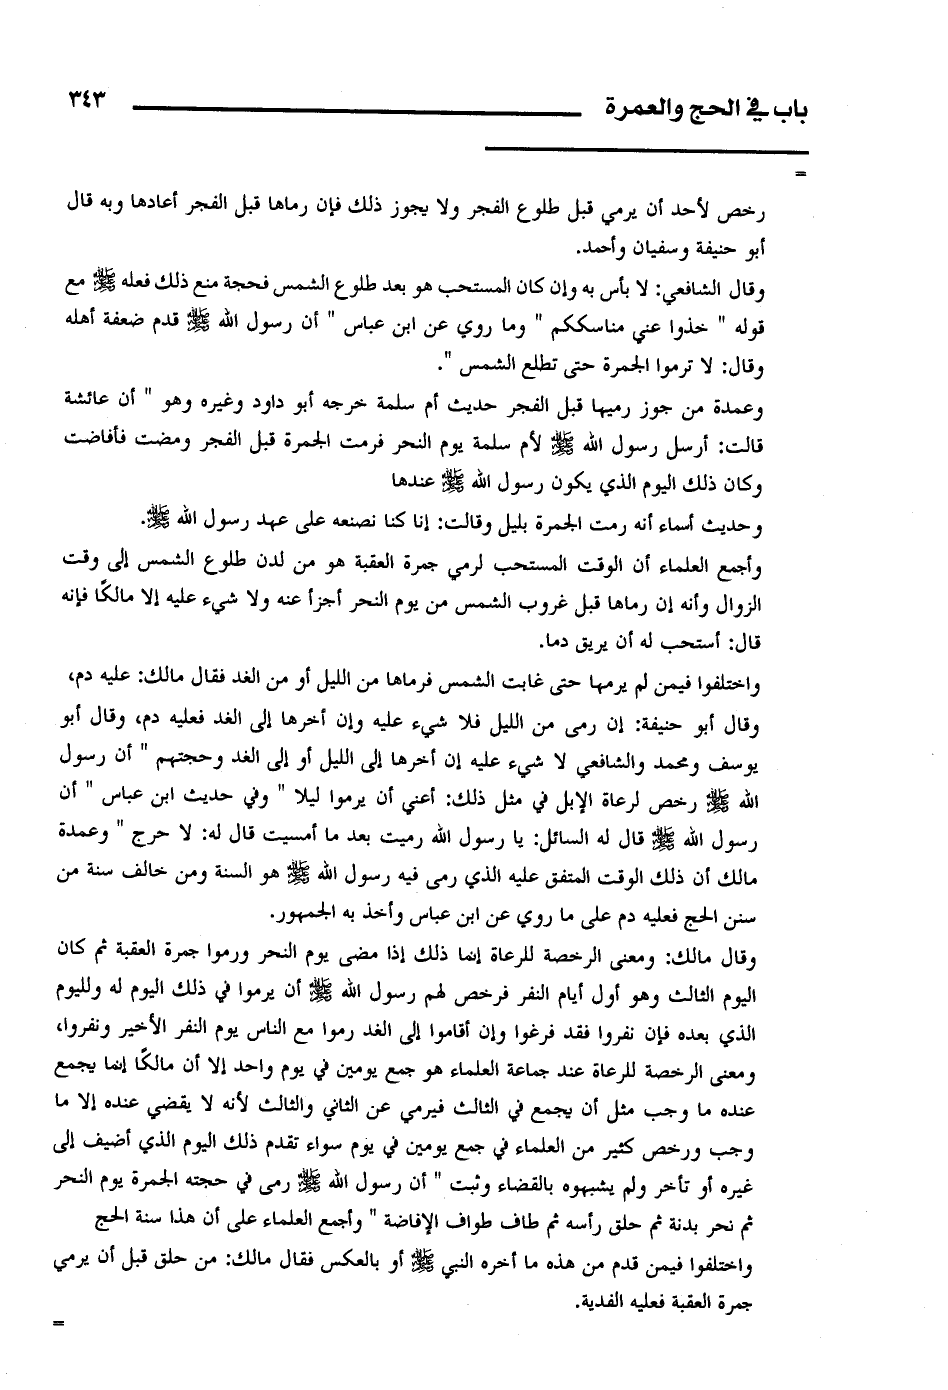 باب في الحج والعمرة ٣٤٣
=
رخص لأحد أن يرمي قبل طلوع الفجر ولا يجوز ذلك فإن رماها قبل الفجر أعادها وبه قال
أبو حنيفة وسفيان وأحمد.
وقال الشافعي: لا بأس به وإن كان المستحب هو بعد طلوع الشمس فحجة منع ذلك فعله ﷺ مع
قوله " خذوا عني مناسككم " وما روي عن ابن عباس " أن رسول الله ﷺ قدم ضعفة أهله
وقال: لا ترموا الجمرة حتى تطلع الشمس ".
وعمدة من جوز رميها قبل الفجر حديث أم سلمة خرجه أبو داود وغيره وهو " أن عائشة
قالت: أرسل رسول الله ﷺ لأم سلمة يوم النحر فرمت الجمرة قبل الفجر ومضت فأفاضت
وكان ذلك اليوم الذي يكون رسول الله ﷺ عندها
وحديث أسماء أنه رمت الجمرة بليل وقالت: إنا كنا نصنعه على عهد رسول الله ﷺ.
وأجمع العلماء أن الوقت المستحب لرمي جمرة العقبة هو من لدن طلوع الشمس إلى وقت
الزوال وأنه إن رماها قبل غروب الشمس من يوم النحر أجزأ عنه ولا شيء عليه إلا مالكًا فإنه
قال: أستحب له أن يريق دما.
واختلفوا فيمن لم يرمها حتى غابت الشمس فرماها من الليل أو من الغد فقال مالك: عليه دم،
وقال أبو حنيفة: إن رمى من الليل فلا شيء عليه وإن أخرها إلى الغد فعليه دم، وقال أبو
يوسف ومحمد والشافعي لا شيء عليه إن أخرها إلى الليل أو إلى الغد وحجتهم " أن رسول
الله ﷺ رخص لرعاة الإبل في مثل ذلك: أعني أن يرموا ليلا " وفي حديث ابن عباس " أن
رسول الله ﷺ قال له السائل: يا رسول الله رميت بعد ما أمسيت قال له: لا حرج " وعمدة
مالك أن ذلك الوقت المتفق عليه الذي رمى فيه رسول الله ﷺ هو السنة ومن خالف سنة من
سنن الحج فعليه دم على ما روي عن ابن عباس وأخذ به الجمهور.
وقال مالك: ومعنى الرخصة للرعاة إنما ذلك إذا مضى يوم النحر ورموا جمرة العقبة ثم كان
اليوم الثالث وهو أول أيام النفر فرخص لهم رسول الله ﷺ أن يرموا في ذلك اليوم له ولليوم
الذي بعده فإن نفروا فقد فرغوا وإن أقاموا إلى الغد رموا مع الناس يوم النفر الأخير ونفروا،
ومعنى الرخصة للرعاة عند جماعة العلماء هو جمع يومين في يوم واحد إلا أن مالكًا إنما يجمع
عنده ما وجب مثل أن يجمع في الثالث فيرمي عن الثاني والثالث لأنه لا يقضي عنده إلا ما
وجب ورخص كثير من العلماء في جمع يومين في يوم سواء تقدم ذلك اليوم الذي أضيف إلى
غيره أو تأخر ولم يشبهوه بالقضاء وثبت " أن رسول الله ﷺ رمى في حجته الجمرة يوم النحر
ثم نحر بدنة ثم حلق رأسه ثم طاف طواف الإفاضة " وأجمع العلماء على أن هذا سنة الحج
واختلفوا فيمن قدم من هذه ما أخره النبي ﷺ أو بالعكس فقال مالك: من حلق قبل أن يرمي
جمرة العقبة فعليه الفدية.
=